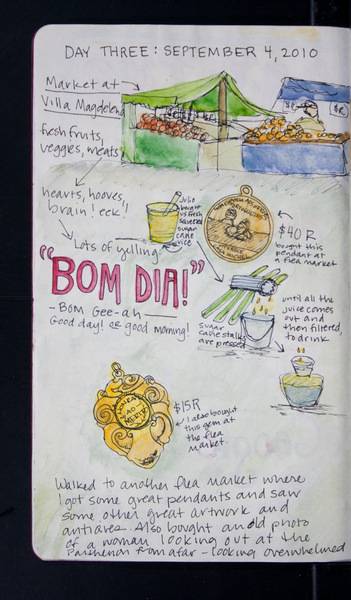 DAY THREE: SEPTEMBER 4, 2010
Market at
Villa Magdelena
fresh fruits,
veggies, meats
hearts, hooves,
brain! eek!
Lots of yelling
"BOM DIA!"
- BOM Gee-ah
Good day! or good morning!
Julio
bought
us fresh
squeezed
sugar
cane
juice
$40 R
bought this
pendant at
a flea market
sugar
cane stalks
are pressed
until all the
juice comes
out and
then filtered,
to drink
$15R
I also bought
this gem at
the flea
market.
Walked to another flea market where
I got some great pendants and saw
some other great artwork and
antiques. Also bought an old photo
of a woman looking out at the
Parthenon from afar - looking overwhelmed